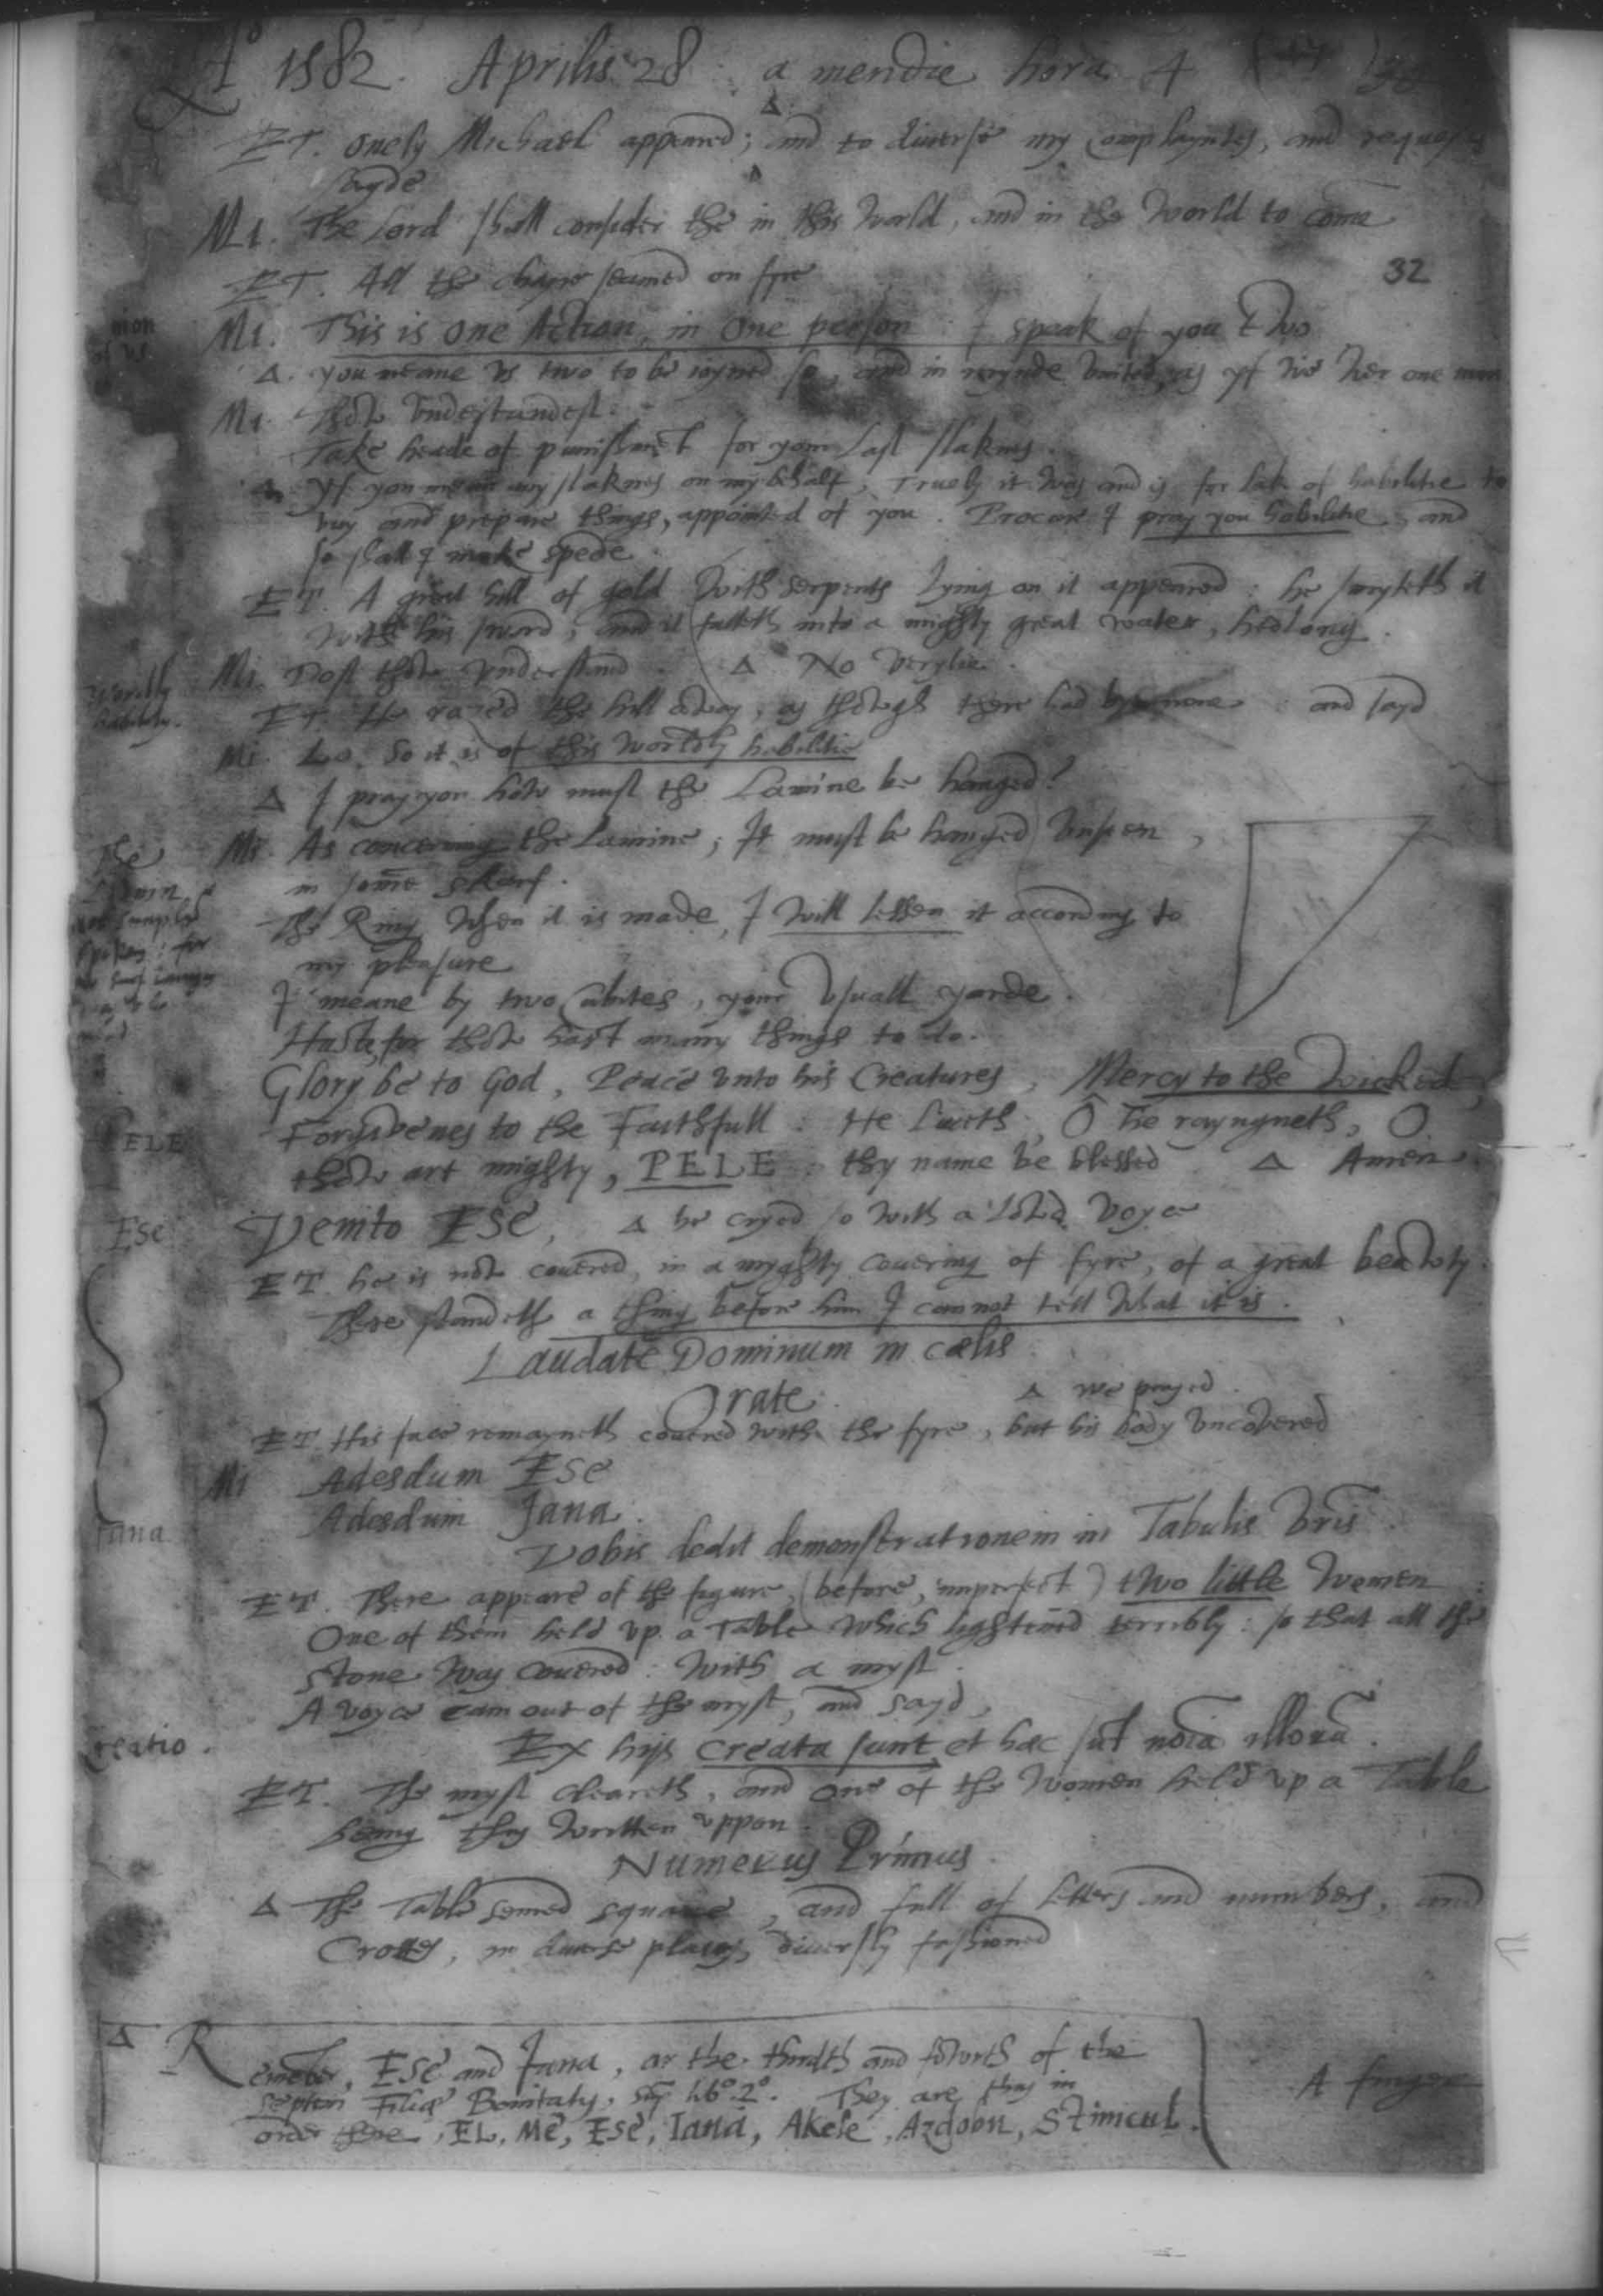 A° 1582. Aprilis 28 : a meridie hora 4
Δ
ET. onely Michael appeared; and to diverse my complayntes, and requestes
sayde
Mi. The Lord shall consider the in this World, and in the World to come
ET. All the chayre seamed on fyre
32
Mi. This is one Action, in one person : I speak of you two
Δ. you meane us two to be ioyned so, and in mynde united, as yf we wer one man
Mi. Thow understandest.
Take heade of punishmēt for your last slaknes.
Δ. Yf you mean any slaknes on my behalf, Truely it was and is for lak of habilitie to
buy and prepare things, appointed of you. Procure I pray you habilitie, and
so shall I make spede.
ET. A great hill of gold with serpents lying on it appeared : he smyteth it
with his sword, and it falleth into a mighty great water, hedlong.
Mi. Dost thow understand. Δ No verylie.
Worldly
hability.
ET. He razed the hill away, as thowgh there had byn none : and sayd
Mi. Lo, so it is of this worldly habilitie
Δ I pray you how must the Lamine be hanged?
Mi. As concerning the Lamine, It must be hanged unseen,
in some skarf.
The Ring when it is made, I will lessen it according to
my pleasure
I meane by two Cubites, your usuall yarde.
Haste, for thow hast many things to do.
Glory be to God, Peace unto his Creatures, Mercy to the wicked,
Forgivenes to the Faithfull : He liveth, Ô he rayngneth, O
PELE
thow art mighty, PELE : thy name be blessed Δ Amen.
Ese
Venito Ese, Δ he cryed so with a lowd voyce
ET. he is now covered, in a myghty covering of fyre, of a great beawty.
There standeth a thing before him I cannot tell what it is.
Laudate Dominum in cælis
Orate. Δ we prayed.
ET. His face remayneth covered with the fyre, but his body uncovered
Mi Adesdum Ese
Adesdum Iana.
Iana
Vobis dedit demonstrationem in Tabulis vris
ET. There appeare of the figure, (before, imperfect) two little Women :
One of them held up a Table which lightened terribly : so that all the
stone was covered : with a myst.
A voyce cam out of the myst, and sayd,
Creatio.
Ex hijs creata sunt et hæc sūt noīa illorū.
ET. The myst cleareth, and one of the Women held up a Table
being thus written uppon
Numerus Primus.
Δ The Table semed square, and full of letters and numbers, and
Crosses, in diverse places, diversly fashioned
Δ Remēber, Ese and Iana, ar the thirdth and fowrth of the
septem Filiæ Bonitatis, sup. lib° 2°. They are thus in
order there, EL, Me, Ese, Iana, Akele, Azdobn, Stimcul.
A finger